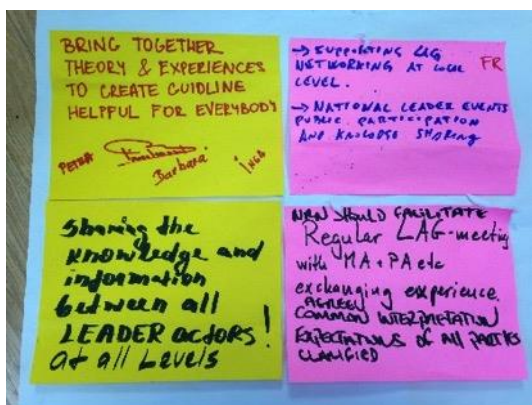 BRING TOGETHER
THEORY & EXPERIENCES
TO CREATE GUIDLINE
HELPFUL FOR EVERYBODY
PETRA
Barbara
INGA
→ SUPPORTING LAG
NETWORKING AT LOCAL
LEVEL.
FR
→ NATIONAL LEADER EVENTS
PUBLIC PARTICIPATION
AND KNOWLEDGE SHARING
Sharing the
knowledge and
information
between all
LEADER actors!
at all Levels
NRN SHOULD FACILITATE
Regular LAG-meeting
with MA+PA etc
exchanging experience.
AGREED
COMMON INTERPRETATION
EXPECTATIONS OF ALL PARTIES
CLARIFIED